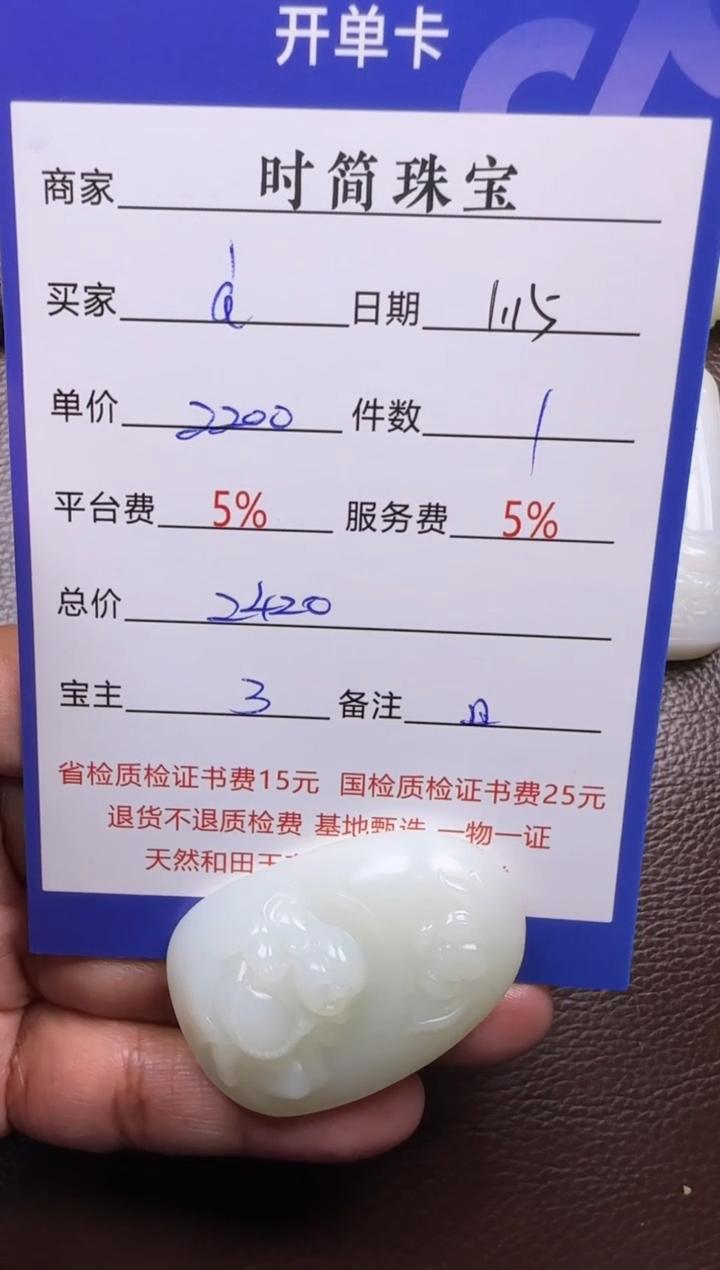 开单卡
商家 时简珠宝
买家 d 日期 1.15
单价 2200 件数 1
平台费 5% 服务费 5%
总价 2420
宝主 3 备注
省检质检证书费15元 国检质检证书费25元
退货不退质检费 基地甄选 一物一证
天然和田玉